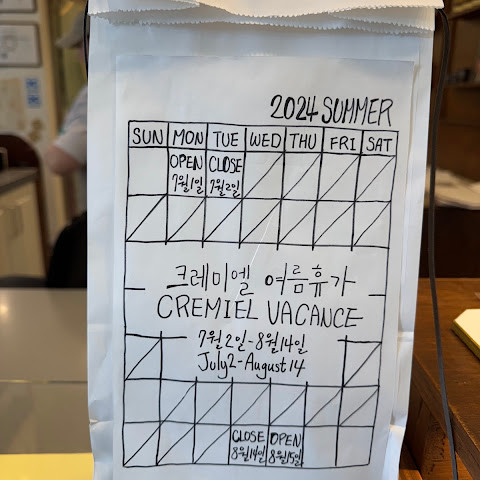 2024 SUMMER
SUN MON TUE WED THU FRI SAT
OPEN CLOSE
7월1일 7월2일
크레미엘 여름휴가
CREMIEL VACANCE
7월2일-8월14일
July2-August14
CLOSE OPEN
8월14일 8월15일